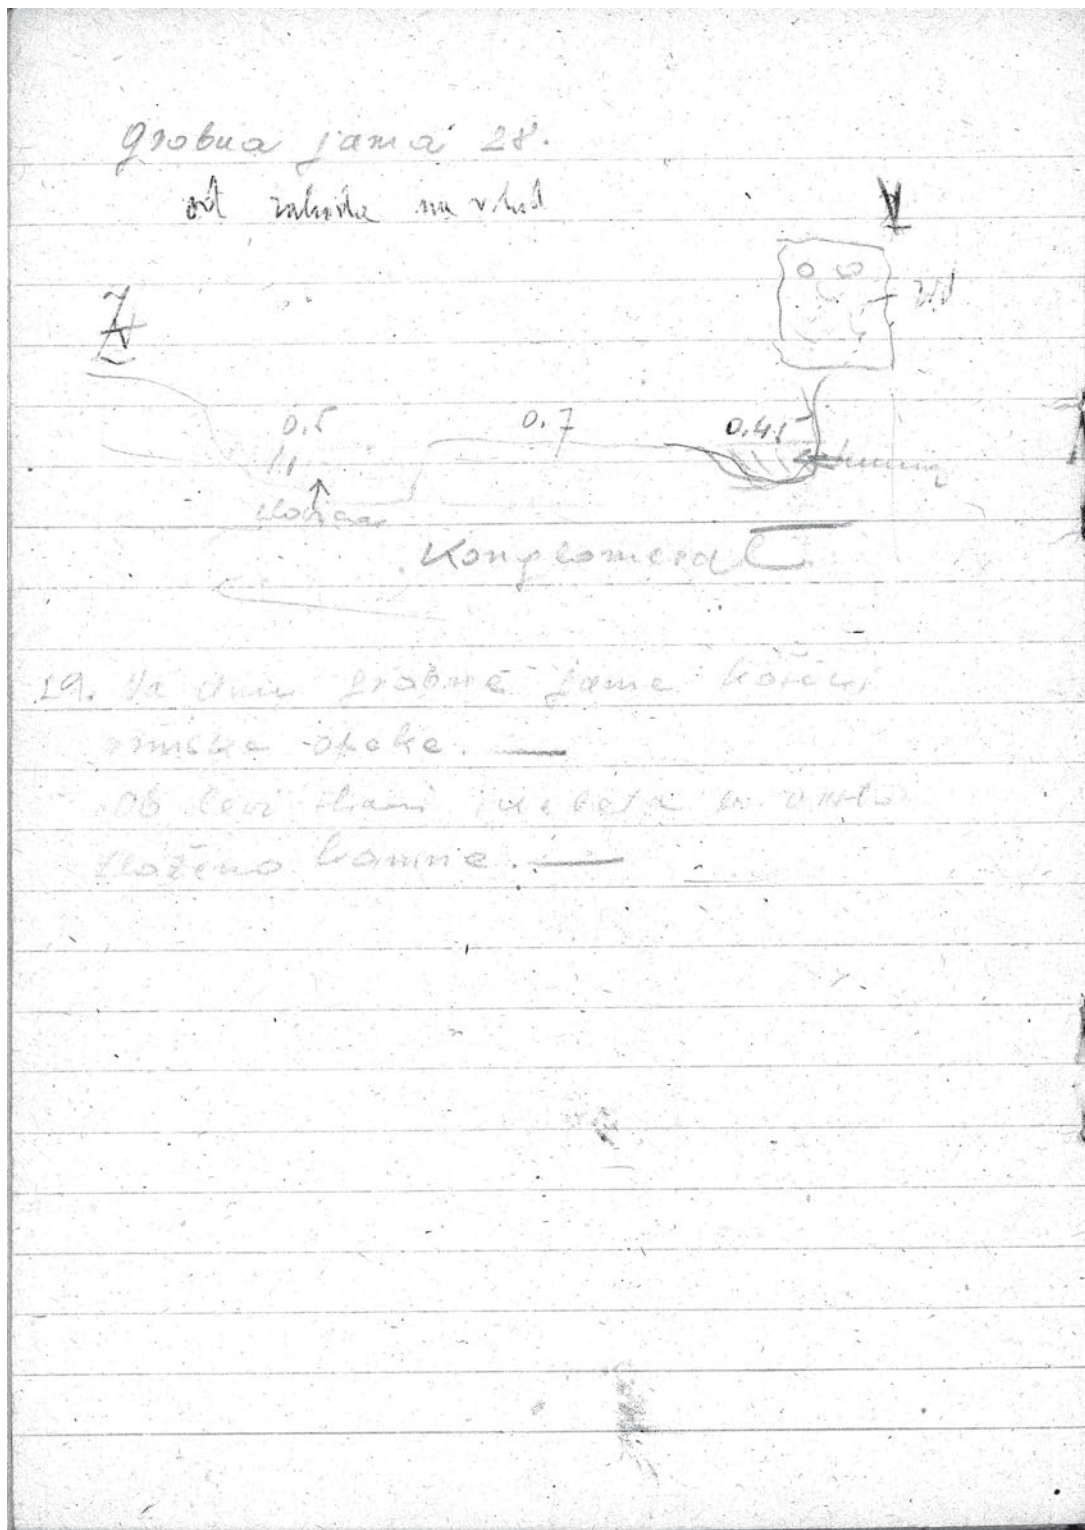 Grobna jama 28.
od zahoda na vzhod
V
Z
zid
0.5
0.7
0.41
humus
Konglomerat
29. Na dnu grobne jame koščki
rimske opeke.
Ob levi strani skeleta
zloženo kamne.